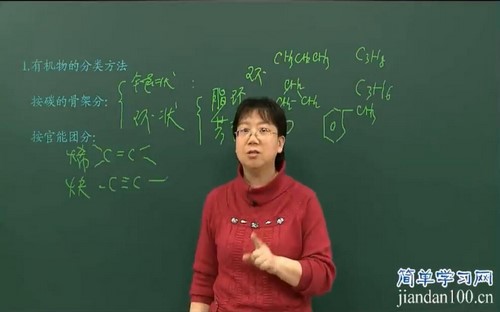 1.有机物的分类方法
CH3CH2CH3 C3H8
链状:
按碳的骨架分:
环状
脂环
CH2 C3H6
CH2-CH2
芳
CH3
按官能团分:
烯 C=C
炔 -C≡C-
简单学习网
jiandan100.cn